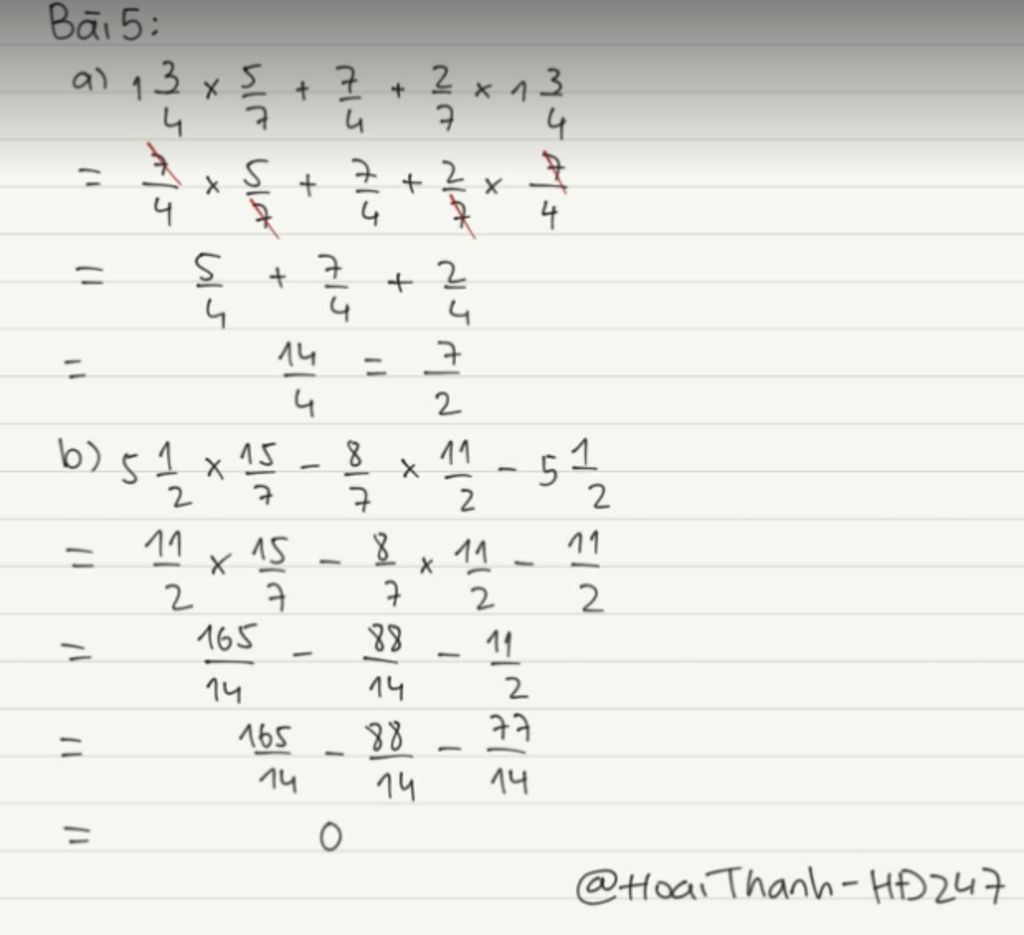 Bài 5:
a) 1 3/4 × 5/7 + 7/4 + 2/7 × 1 3/4
= 7/4 × 5/7 + 7/4 + 2/7 × 7/4
= 5/4 + 7/4 + 2/4
= 14/4 = 7/2
b) 5 1/2 × 15/7 - 8/7 × 11/2 - 5 1/2
= 11/2 × 15/7 - 8/7 × 11/2 - 11/2
= 165/14 - 88/14 - 11/2
= 165/14 - 88/14 - 77/14
= 0
@HoaiThanh-HĐ247